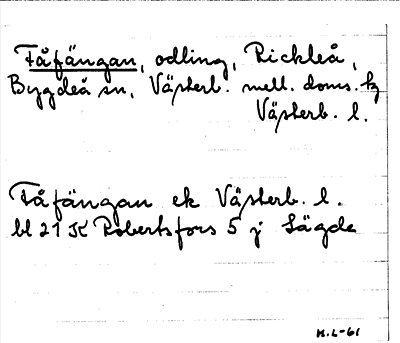 Fåfängan, odling, Rickleå,
Bygdeå sn, Västerb. mell. doms. tg
Västerb. l.
Fåfängan ek Västerb. l.
bl 21 K Robertsfors 5 j Lägde
H.L-61